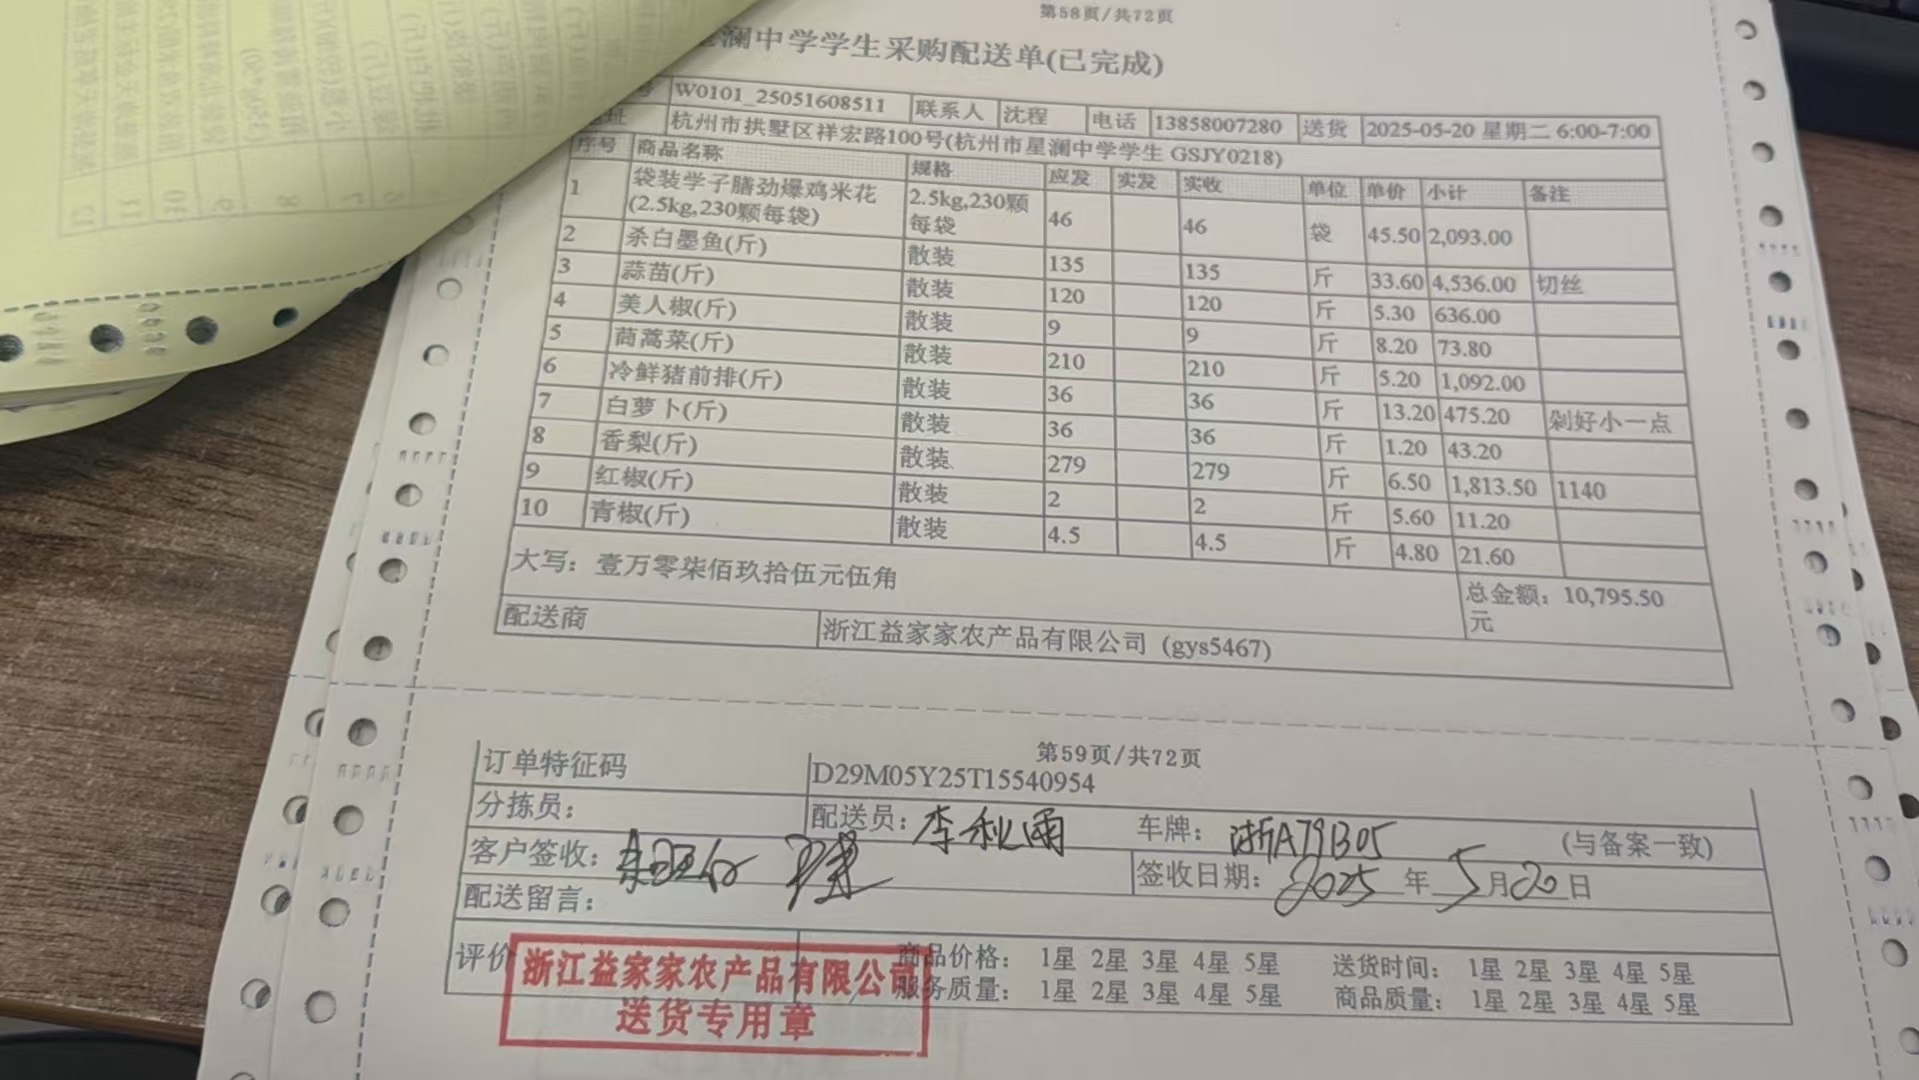 第58页/共72页
澜中学学生采购配送单(已完成)
号 W0101_25051608511 联系人 沈程 电话 13858007280 送货 2025-05-20 星期二 6:00-7:00
址 杭州市拱墅区祥宏路100号(杭州市星澜中学学生 GSJY0218)
序号 商品名称 规格 应发 实发 实收 单位 单价 小计 备注
1 袋装学子膳劲爆鸡米花(2.5kg,230颗每袋) 2.5kg,230颗每袋 46 46 袋 45.50 2,093.00
2 杀白墨鱼(斤) 散装 135 135 斤 33.60 4,536.00 切丝
3 蒜苗(斤) 散装 120 120 斤 5.30 636.00
4 美人椒(斤) 散装 9 9 斤 8.20 73.80
5 茼蒿菜(斤) 散装 210 210 斤 5.20 1,092.00
6 冷鲜猪前排(斤) 散装 36 36 斤 13.20 475.20 剁好小一点
7 白萝卜(斤) 散装 36 36 斤 1.20 43.20
8 香梨(斤) 散装 279 279 斤 6.50 1,813.50 1140
9 红椒(斤) 散装 2 2 斤 5.60 11.20
10 青椒(斤) 散装 4.5 4.5 斤 4.80 21.60
大写：壹万零柒佰玖拾伍元伍角 总金额：10,795.50元
配送商 浙江益家家农产品有限公司 (gys5467)
第59页/共72页
订单特征码 D29M05Y25T15540954
分拣员： 配送员：李秋雨 车牌：浙A79B05 (与备案一致)
客户签收： 签收日期：2025年5月20日
配送留言：
评价 商品价格： 1星 2星 3星 4星 5星 送货时间： 1星 2星 3星 4星 5星
服务质量： 1星 2星 3星 4星 5星 商品质量： 1星 2星 3星 4星 5星
浙江益家家农产品有限公司
送货专用章